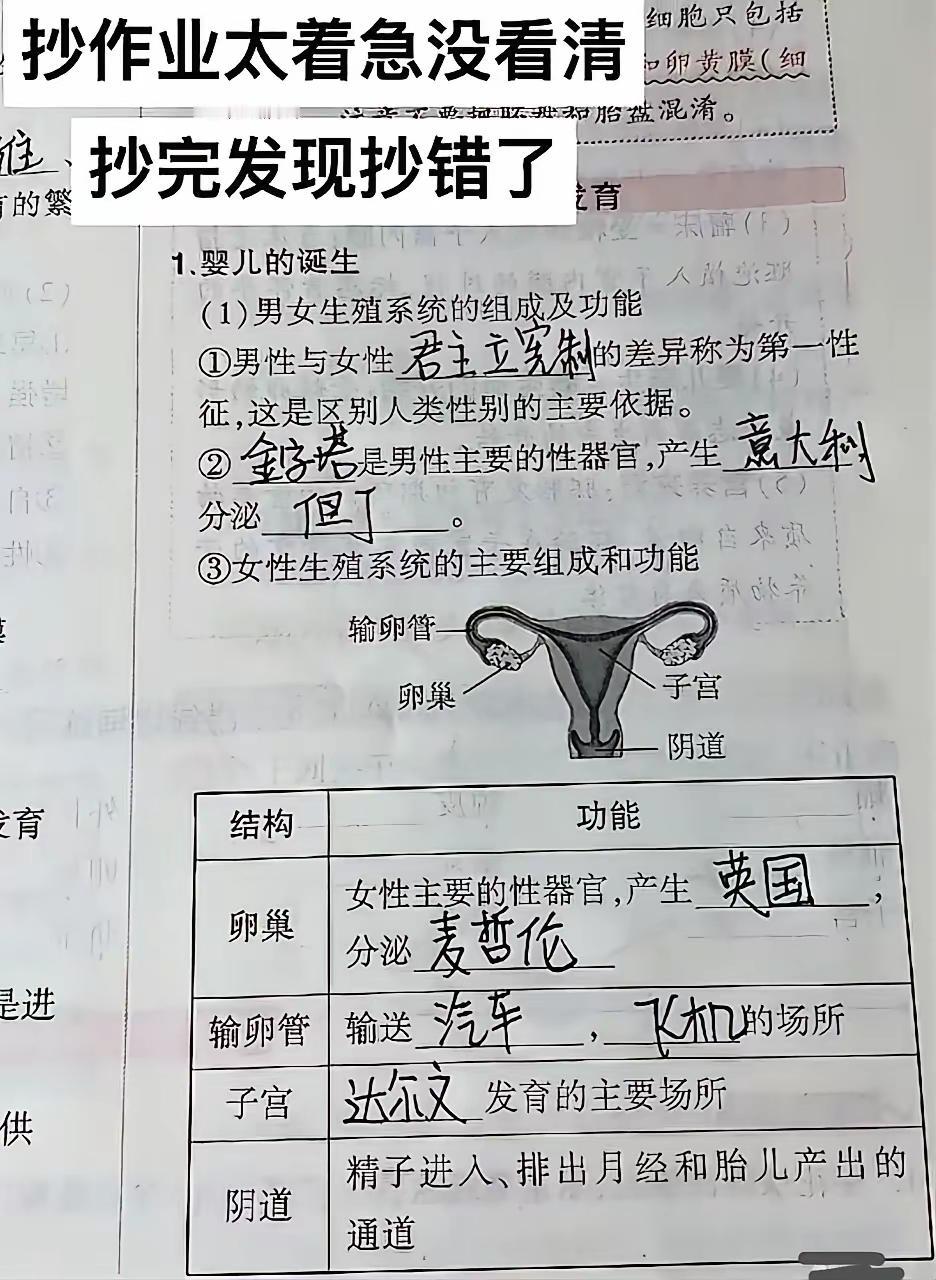 抄作业太着急没看清
抄完发现抄错了
细胞只包括
和卵黄膜(细
胎盘混淆。
发育
有的繁
1.婴儿的诞生
(1)男女生殖系统的组成及功能
①男性与女性君主立宪制的差异称为第一性
征,这是区别人类性别的主要依据。
②金字塔是男性主要的性器官,产生意大利
分泌但丁。
③女性生殖系统的主要组成和功能
输卵管
卵巢
子宫
阴道
结构 功能
卵巢 女性主要的性器官,产生英国,
分泌麦哲伦
输卵管 输送汽车,飞机的场所
子宫 达尔文发育的主要场所
阴道 精子进入、排出月经和胎儿产出的
通道
发育
是进
供